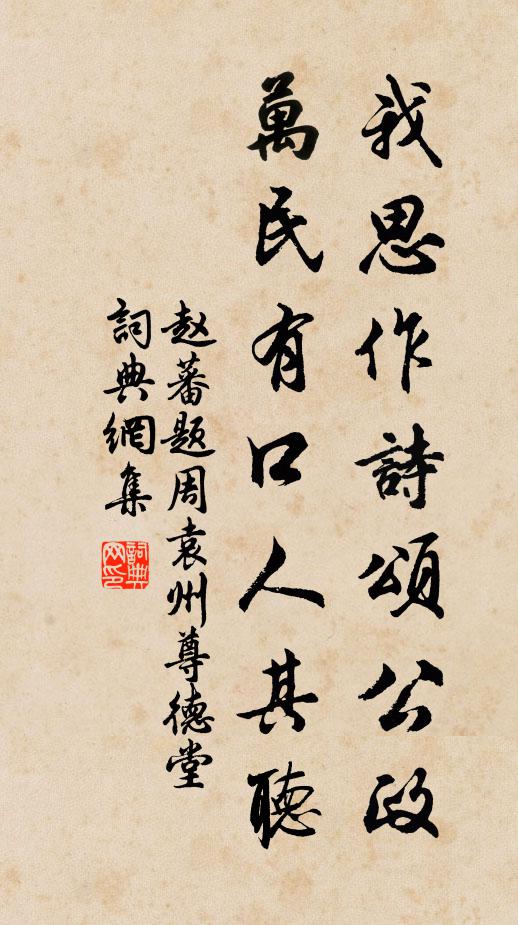 我思作詩頌公政
萬民有口人其聽
赵蕃题周袁州尊德堂
詞典網集
詞典网印